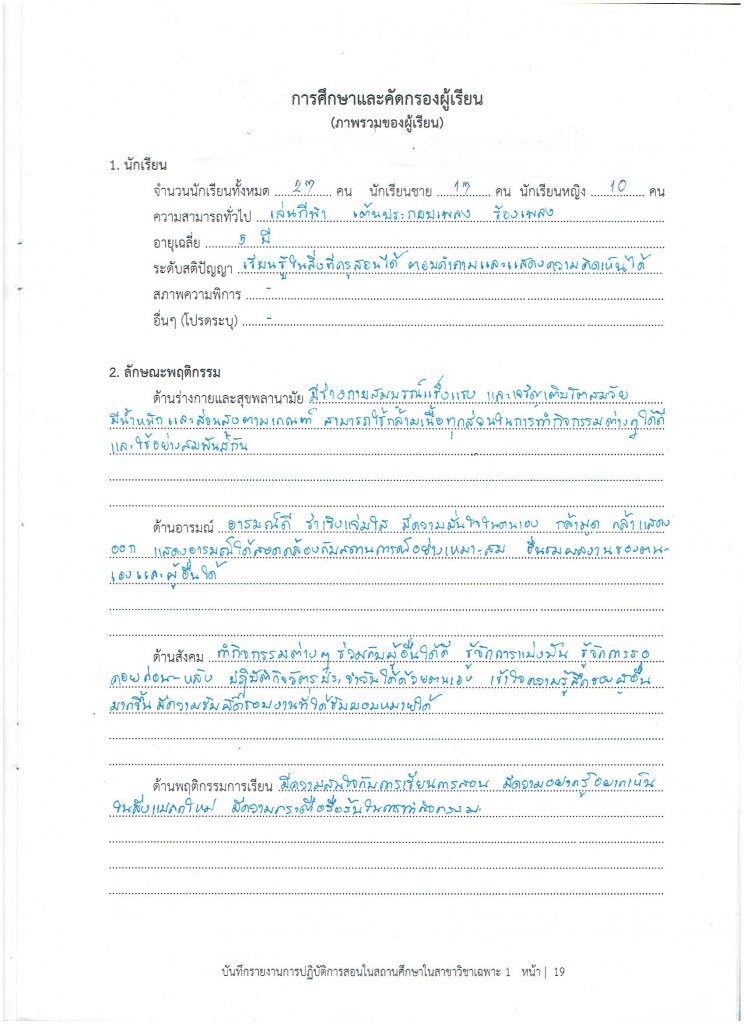 การศึกษาและคัดกรองผู้เรียน
(ภาพรวมของผู้เรียน)
1. นักเรียน
จำนวนนักเรียนทั้งหมด 27 คน นักเรียนชาย 17 คน นักเรียนหญิง 10 คน
ความสามารถทั่วไป เล่นกีฬา เต้นประกอบเพลง ร้องเพลง
อายุเฉลี่ย 5 ปี
ระดับสติปัญญา เรียนรู้ในสิ่งที่ครูสอนได้ ตอบคำถามและแสดงความคิดเห็นได้
สภาพความพิการ -
อื่นๆ (โปรดระบุ) -
2. ลักษณะพฤติกรรม
ด้านร่างกายและสุขพลานามัย มีร่างกายสมบูรณ์แข็งแรง และเจริญเติบโตสมวัย
มีน้ำหนักและส่วนสูงตามเกณฑ์ สามารถใช้กล้ามเนื้อทุกส่วนในการทำกิจกรรมต่างๆได้ดี
และใช้อย่างสัมพันธ์กัน
ด้านอารมณ์ อารมณ์ดี ร่าเริงแจ่มใส มีความมั่นใจในตนเอง กล้าพูด กล้าแสดง
ออก แสดงอารมณ์ได้สอดคล้องกับสถานการณ์อย่างเหมาะสม ชื่นชมผลงานของตน-
เองและผู้อื่นได้
ด้านสังคม ทำกิจกรรมต่างๆ ร่วมกับผู้อื่นได้ดี รู้จักการแบ่งปัน รู้จักการรอ
คอยก่อน-หลัง ปฏิบัติกิจวัตรประจำวันได้ด้วยตนเอง เข้าใจความรู้สึกของผู้อื่น
มากขึ้น มีความรับผิดชอบงานที่ได้รับมอบหมายได้
ด้านพฤติกรรมการเรียน มีความสนใจกับการเรียนการสอน มีความอยากรู้อยากเห็น
ในสิ่งแปลกใหม่ มีความกระตือรือร้นในการทำกิจกรรม
บันทึกรายงานการปฏิบัติการสอนในสถานศึกษาในสาขาวิชาเฉพาะ 1 หน้า | 19